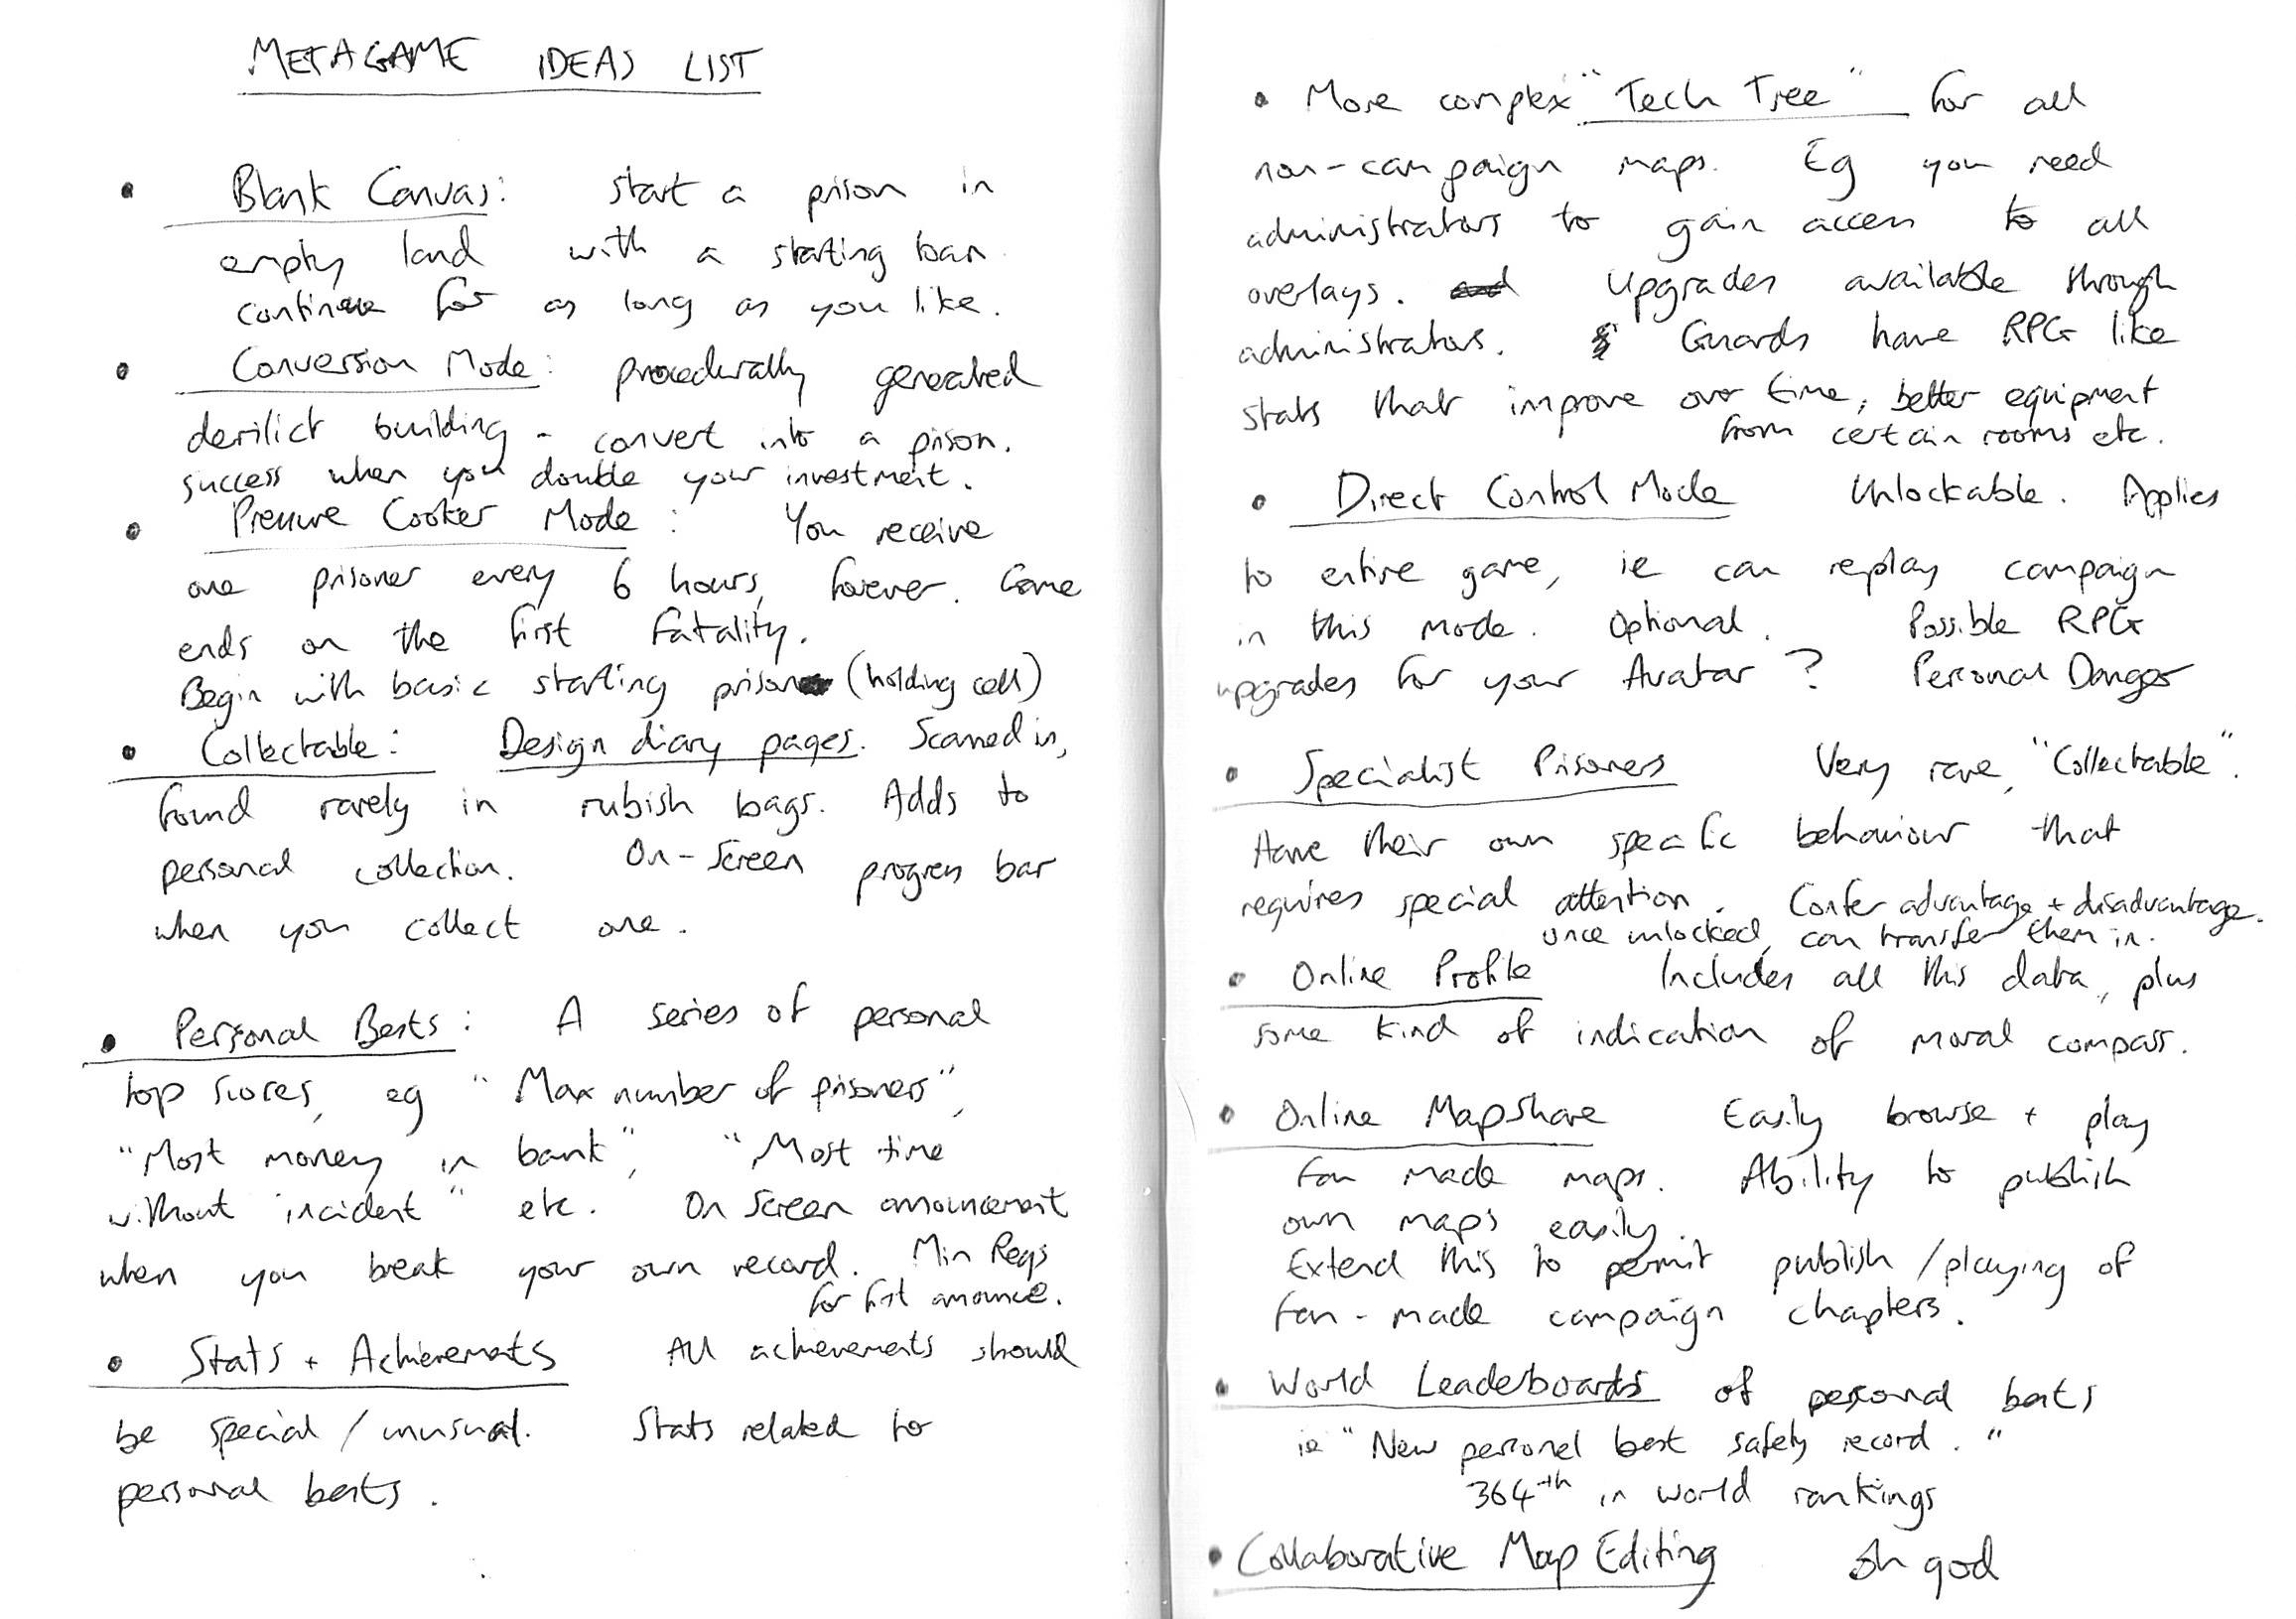 METAGAME IDEAS LIST
• Blank Canvas: start a prison in
empty land with a starting loan.
continue for as long as you like.
• Conversion Mode: procedurally generated
derilict building - convert into a prison.
success when you double your investment.
• Pressure Cooker Mode: You receive
one prisoner every 6 hours, forever. Game
ends on the first fatality.
Begin with basic starting prison (holding cell)
• Collectable: Design diary pages. Scanned in,
found rarely in rubish bags. Adds to
personal collection. On-Screen progress bar
when you collect one.
• Personal Bests: A series of personal
top scores, eg "Max number of prisoners",
"Most money in bank", "Most time
without incident" etc. On screen announcement
when you break your own record. Min Reqs
for first announce.
• Stats + Achievements All achievements should
be special / unusual. Stats related to
personal bests.
• More complex "Tech Tree" for all
non-campaign maps. Eg you need
administrators to gain access to all
overlays. and Upgrades available through
administrators. Guards have RPG like
stats that improve over time, better equipment
from certain rooms etc.
• Direct Control Mode Unlockable. Applies
to entire game, ie can replay campaign
in this mode. Optional. Possible RPG
upgrades for your Avatar? Personal Danger
• Specialist Prisoners Very rare, "Collectable".
Have their own specific behaviour that
requires special attention. Confer advantage + disadvantage.
once unlocked, can transfer them in.
• Online Profile Includes all this data, plus
some kind of indication of moral compass.
• Online MapShare Easily browse + play
fan made maps. Ability to publish
own maps easily.
Extend this to permit publish / playing of
fan-made campaign chapters.
• World Leaderboards of personal bests
ie "New personel best safety record."
364th in world rankings
• Collaborative Map Editing oh god